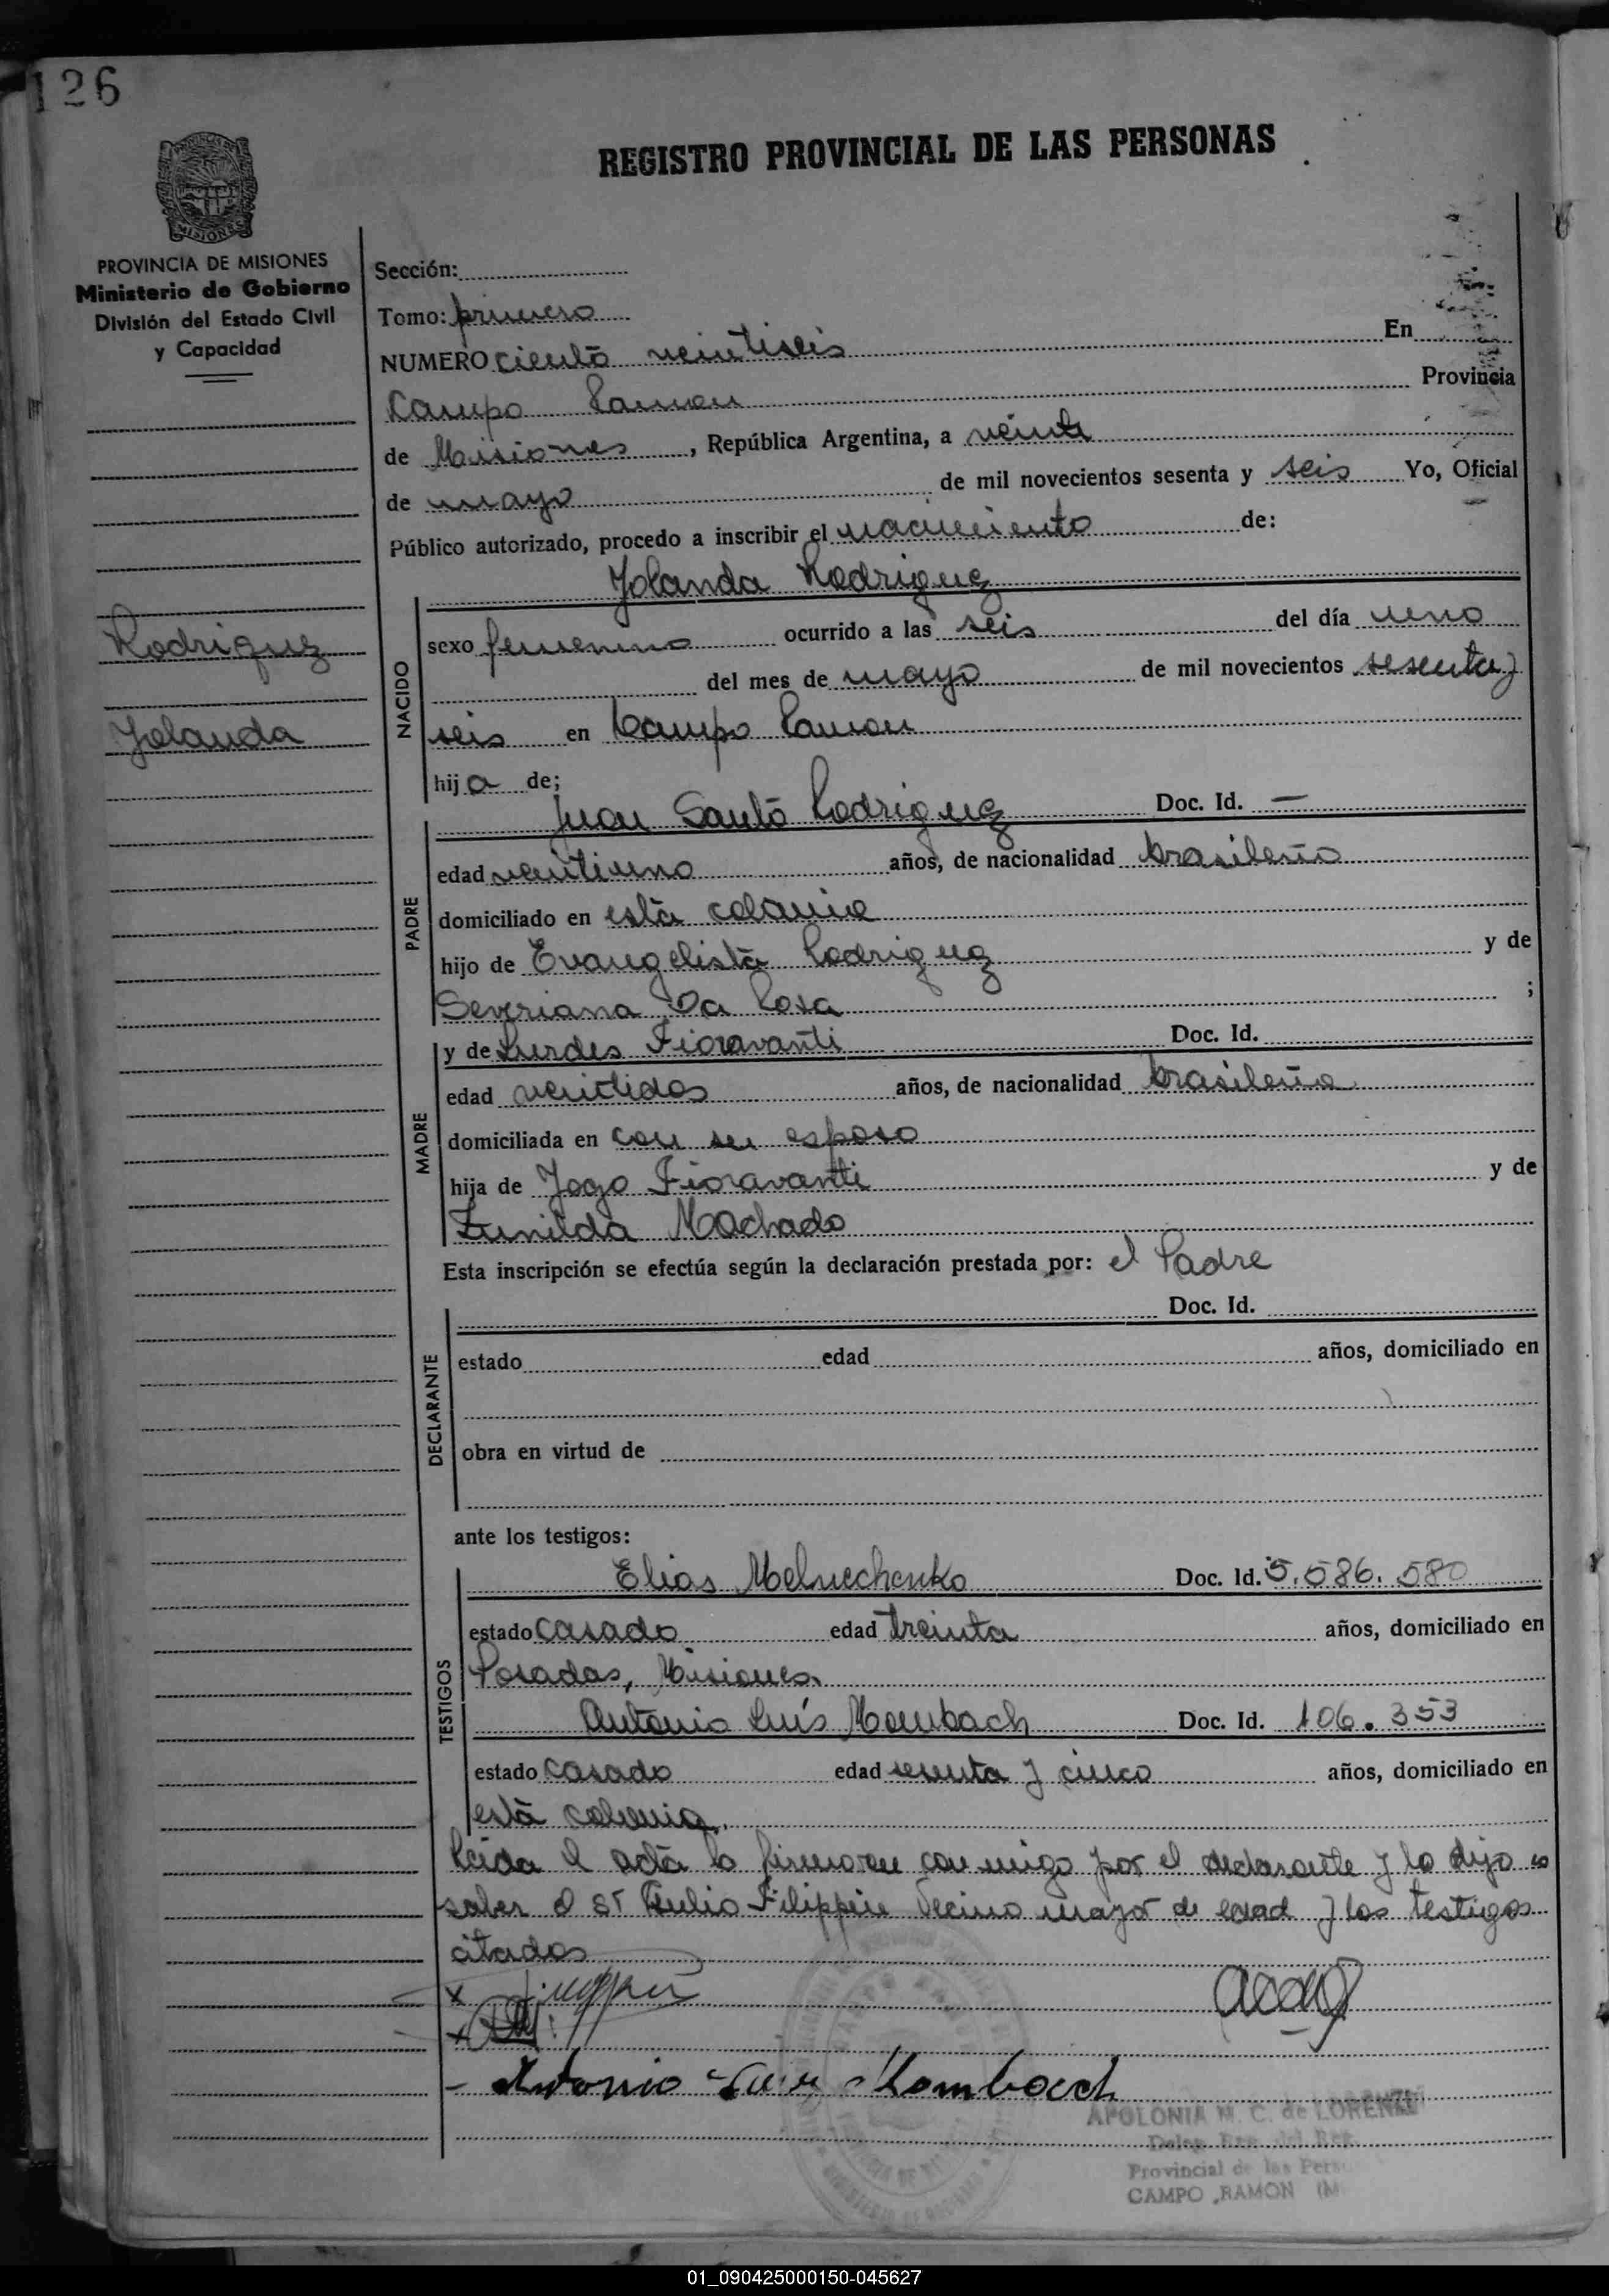 126
REGISTRO PROVINCIAL DE LAS PERSONAS
MISIONES
PROVINCIA DE MISIONES
Ministerio de Gobierno
División del Estado Civil
y Capacidad
Rodriguez
Yolanda
Sección:
Tomo: primero
NUMERO ciento veintiseis En
Campo Ramon Provincia
de Misiones, República Argentina, a veinte
de mayo de mil novecientos sesenta y seis Yo, Oficial
Público autorizado, procedo a inscribir el nacimiento de:
Yolanda Rodriguez
NACIDO
sexo femenino ocurrido a las seis del día uno
del mes de mayo de mil novecientos sesenta y
seis en Campo Ramon
hija de;
PADRE
Juan Santo Rodriguez Doc. Id. —
edad veintiuno años, de nacionalidad brasileño
domiciliado en esta colonia
hijo de Evangelista Rodriguez y de
Severiana Da Rosa ;
MADRE
y de Lurdes Fioravanti Doc. Id.
edad veintidos años, de nacionalidad brasileña
domiciliada en con su esposo
hija de Jogo Fioravanti y de
Zunilda Machado
Esta inscripción se efectúa según la declaración prestada por: el Padre
DECLARANTE
Doc. Id.
estado edad años, domiciliado en
obra en virtud de
ante los testigos:
TESTIGOS
Elias Melnechenko Doc. Id. 5.586.580
estado casado edad treinta años, domiciliado en
Posadas, Misiones.
Antonio Luis Mombach Doc. Id. 106.353
estado casado edad sesenta y cinco años, domiciliado en
esta colonia.
Leida el acta la firmaron conmigo por el declarante y lo dijo no
saber el Sr Filippin vecino mayor de edad y los testigos
citados
Antonio Luis Mombach
APOLONIA M. C. de LORENZ
Provincial de las Pers
CAMPO RAMON (M
01_090425000150-045627